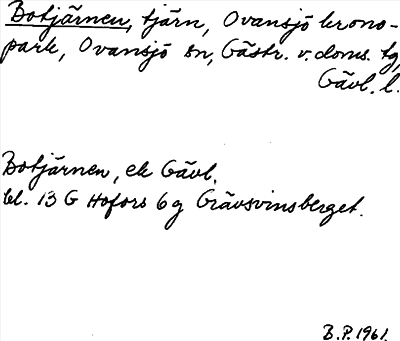 Botjärnen, tjärn, Ovansjö krono-
park, Ovansjö sn, Gästr. v. doms. tg,
Gävl. l.
Botjärnen, ek Gävl.
bl. 13 G Hofors 6 g Grävsvinsberget.
B.P. 1961.